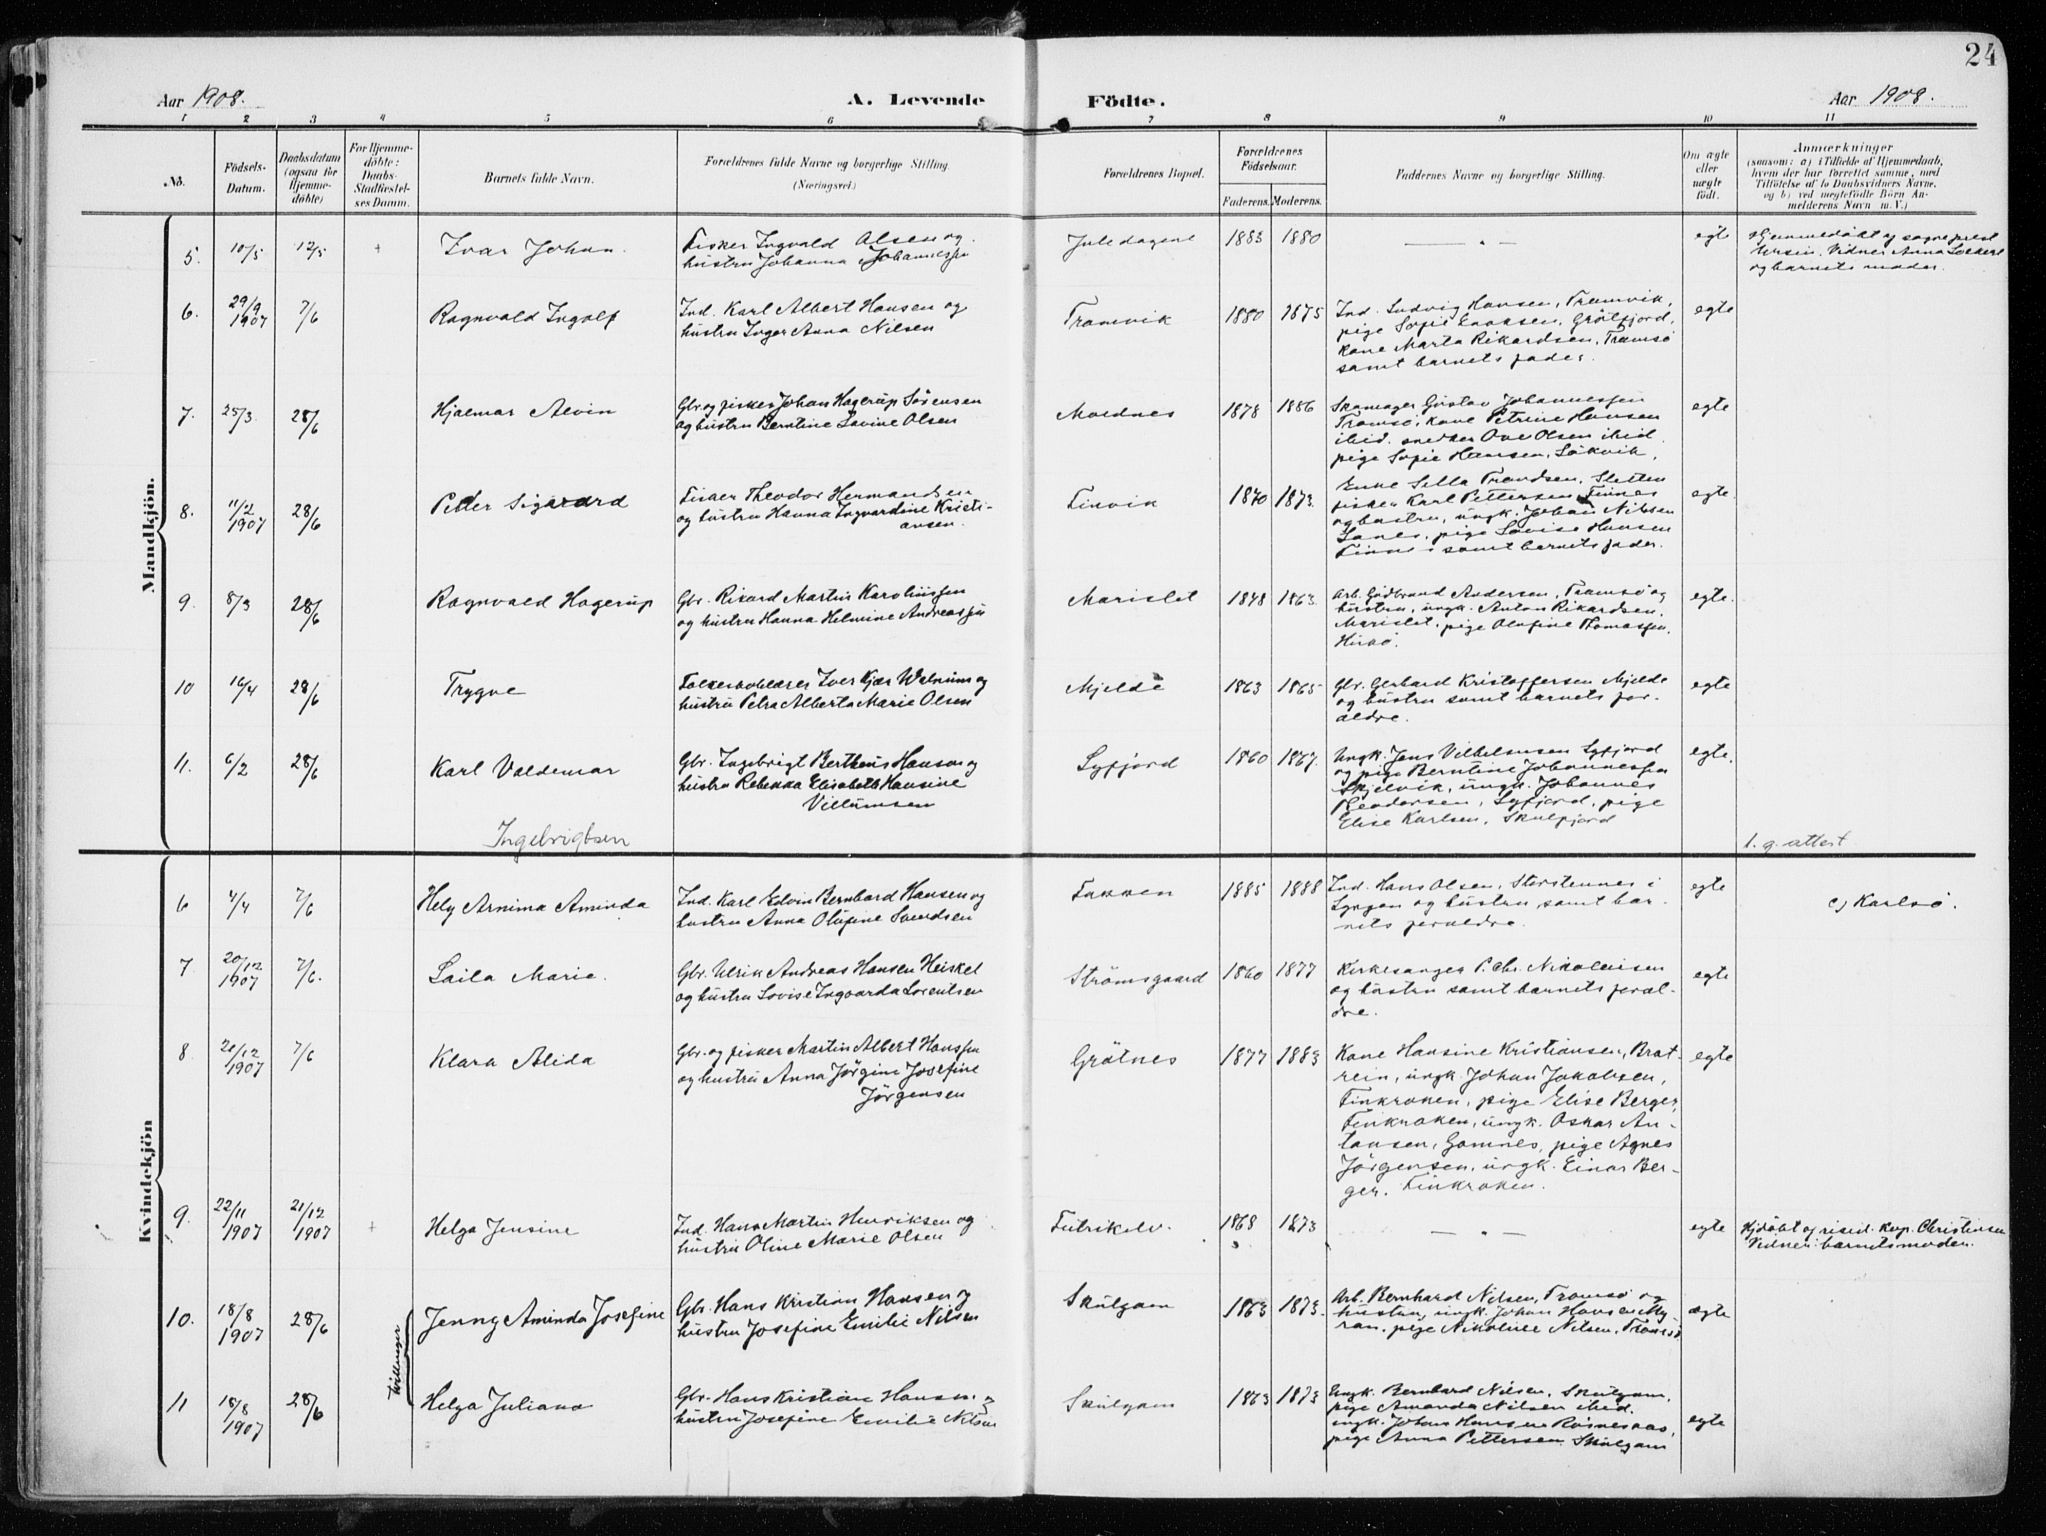 24
Aar 1908.
A. Levende Födte.
Aar 1908.
1 2 3 4 5 6 7 8 9 10 11
No.
Födsels-
Datum.
Daabsdatum
(ogsaa for
Hjemme-
döbte)
For Hjemme-
döbte:
Daabs-
Stadfæstel-
ses Datum.
Barnets fulde Navn.
Forældrenes fulde Navne og borgerlige Stilling.
(Næringsvei)
Forældrenes Bopæl.
Forældrenes
Födselsaar.
Faderens. Moderens.
Faddernes Navne og borgerlige Stilling.
Om ægte
eller
uægte
födt.
Anmærkninger
(saasom: a) i Tilfælde af Hjemmedaab,
hvem der har forrettet samme, med
Tilföielse af to Daabsvidners Navne,
og b) ved uægtefödte Börn An-
melderens Navn m. V.)
Mandkjön.
5. 10/5 12/5 + Ivar Johan.
Fisker Ingvald Olsen og
hustru Johanna Johannessen
Juledagene 1883 1880 — " — egte
Hjemmedöbt af sogneprest
Vidner Anna
og barnets moder.
6. 29/9 1907 7/6 Ragnvald Ingolf
Ind. Karl Albert Hansen og
hustru Inger Anna Nilsen
Tromvik 1880 1875
Ind. Ludvig Hansen, Tromvik,
pige Sofie Enoksen, Grötfjord,
kone Marta Rikardsen, Tromsö
samt barnets fader.
egte
7. 25/3 28/6 Hjalmar Alvin
Gbr. og fisker Johan Hagerup Sörensen
og hustru Berntine Lovine Olsen
Moldnes 1878 1886
Skomager Gustav Johannessen
Tromsö, kone Petrine Hansen
ibid. snedker Ove Olsen ibid.
pige Sofie Hansen,
egte
8. 11/2 1907 28/6 Peder Sigvard
Fisker Theodor Hermandsen
og hustru Hanna Ingvardine Kristi-
ansen.
Finvik 1870 1873.
Enke Sella Trondsen, Sletten
fisker Karl Pettersen Finnes
og hustru, ungk. Johan Nilsen
pige Lovise Hansen
Finnes samt barnets fader.
egte
9. 8/3 28/6 Ragnvald Hagerup
Gbr. Rikard Martin Karoliussen
og hustru Hanna Helmine Andreassen
Marislet 1848 1863.
Arb. Gudbrand Andersen, Tromsö og
hustru, ungk. Anton Rikardsen,
Marislet, pige Olufine Thomassen,
egte.
10 16/4 28/6 Trygve
Iver Kjær Walnum og
hustru Petra Alberta Marie Olsen
Mjelde 1863 1865
Gbr. Gerhard Kristoffersen Mjelde
og hustru samt barnets for-
ældre.
egte
11. 6/2 28/6 Karl Valdemar
Ingebrigtsen
Gbr. Ingebrigt Bertheus Hansen og
hustru Rebekka Elisabeth Hansine
Villumsen
Lyfjord 1860 1867.
Ungk. Jens Vilhelmsen Lyfjord
og pige Berntine Johannessen
Skjelvik, ungk. Johannes
Theodorsen, Lyfjord, pige
Elise Karlsen, Skulfjord
egte.
1. g. attest.
Kvindekjön
6 4/4 7/6 Hely Arnima Aminda
Ind. Karl Edvin Bernhard Hansen og
hustru Anna Olufine Svendsen
Takken 1885 1888
Ind. Hans Olsen, Storstennes i
Lyngen og hustru samt bar-
nets forældre.
egte
c) Karlsö.
7 20/12 1907 7/6. Laila Marie.
Gbr. Ulrik Andreas Hansen Heiskel
og hustru Lovise Ingvarda Lorentsen
Strömsgaard 1860 1877
Kirkesanger P. Chr. Nikolaisen
og hustru samt barnets foræl-
dre.
egte
8 21/12 1907 7/6 Klara Alida
Gbr. og fisker Martin Albert Hanssen
og hustru Anna Jörgine Josefine
Jörgensen
Grötnes 1877 1883
Kone Hansine Kristiansen, Brat-
rein, ungk. Johan Jakobsen,
Finkroken, pige Elise Berger,
Finkroken, ungk. Oskar An-
tonsen, Gamnes, pige Agnes
Jörgensen, ungk. Einar Ber-
ger. Finkroken.
egte
9. 22/11 1907 21/12 1907 + Helga Jensine
Ind. Hans Martin Henriksen og
hustru Oline Marie Olsen
Futrikelv. 1868 1873 — " — egte
Hjdöbt af resid. kap. Christensen
Vidner: barnets moder.
10. 18/8 1907 28/6 Jenny Aminda Josefine
Tvillinger
Gbr. Hans Kristian Hansen og
hustru Josefine Emilie Nilsen
Skulgam 1863 1873.
Arb. Bernhard Nilsen, Tromsö og
hustru, ungk. Johan Hansen My-
ran, pige Nikoline Nilsen, Tromsö
ægte
11 18/8 1907 28/6 Helga Juliana
Gbr. Hans Kristian Hansen og
hustru Josefine Emilie Nilsen
Skulgam 1863 1873
Ungk. Bernhard Nilsen, Skulgam,
pige Amanda Nilsen ibid.
ungk. Johan Hansen
pige Anna Pettersen Skulgam
egte